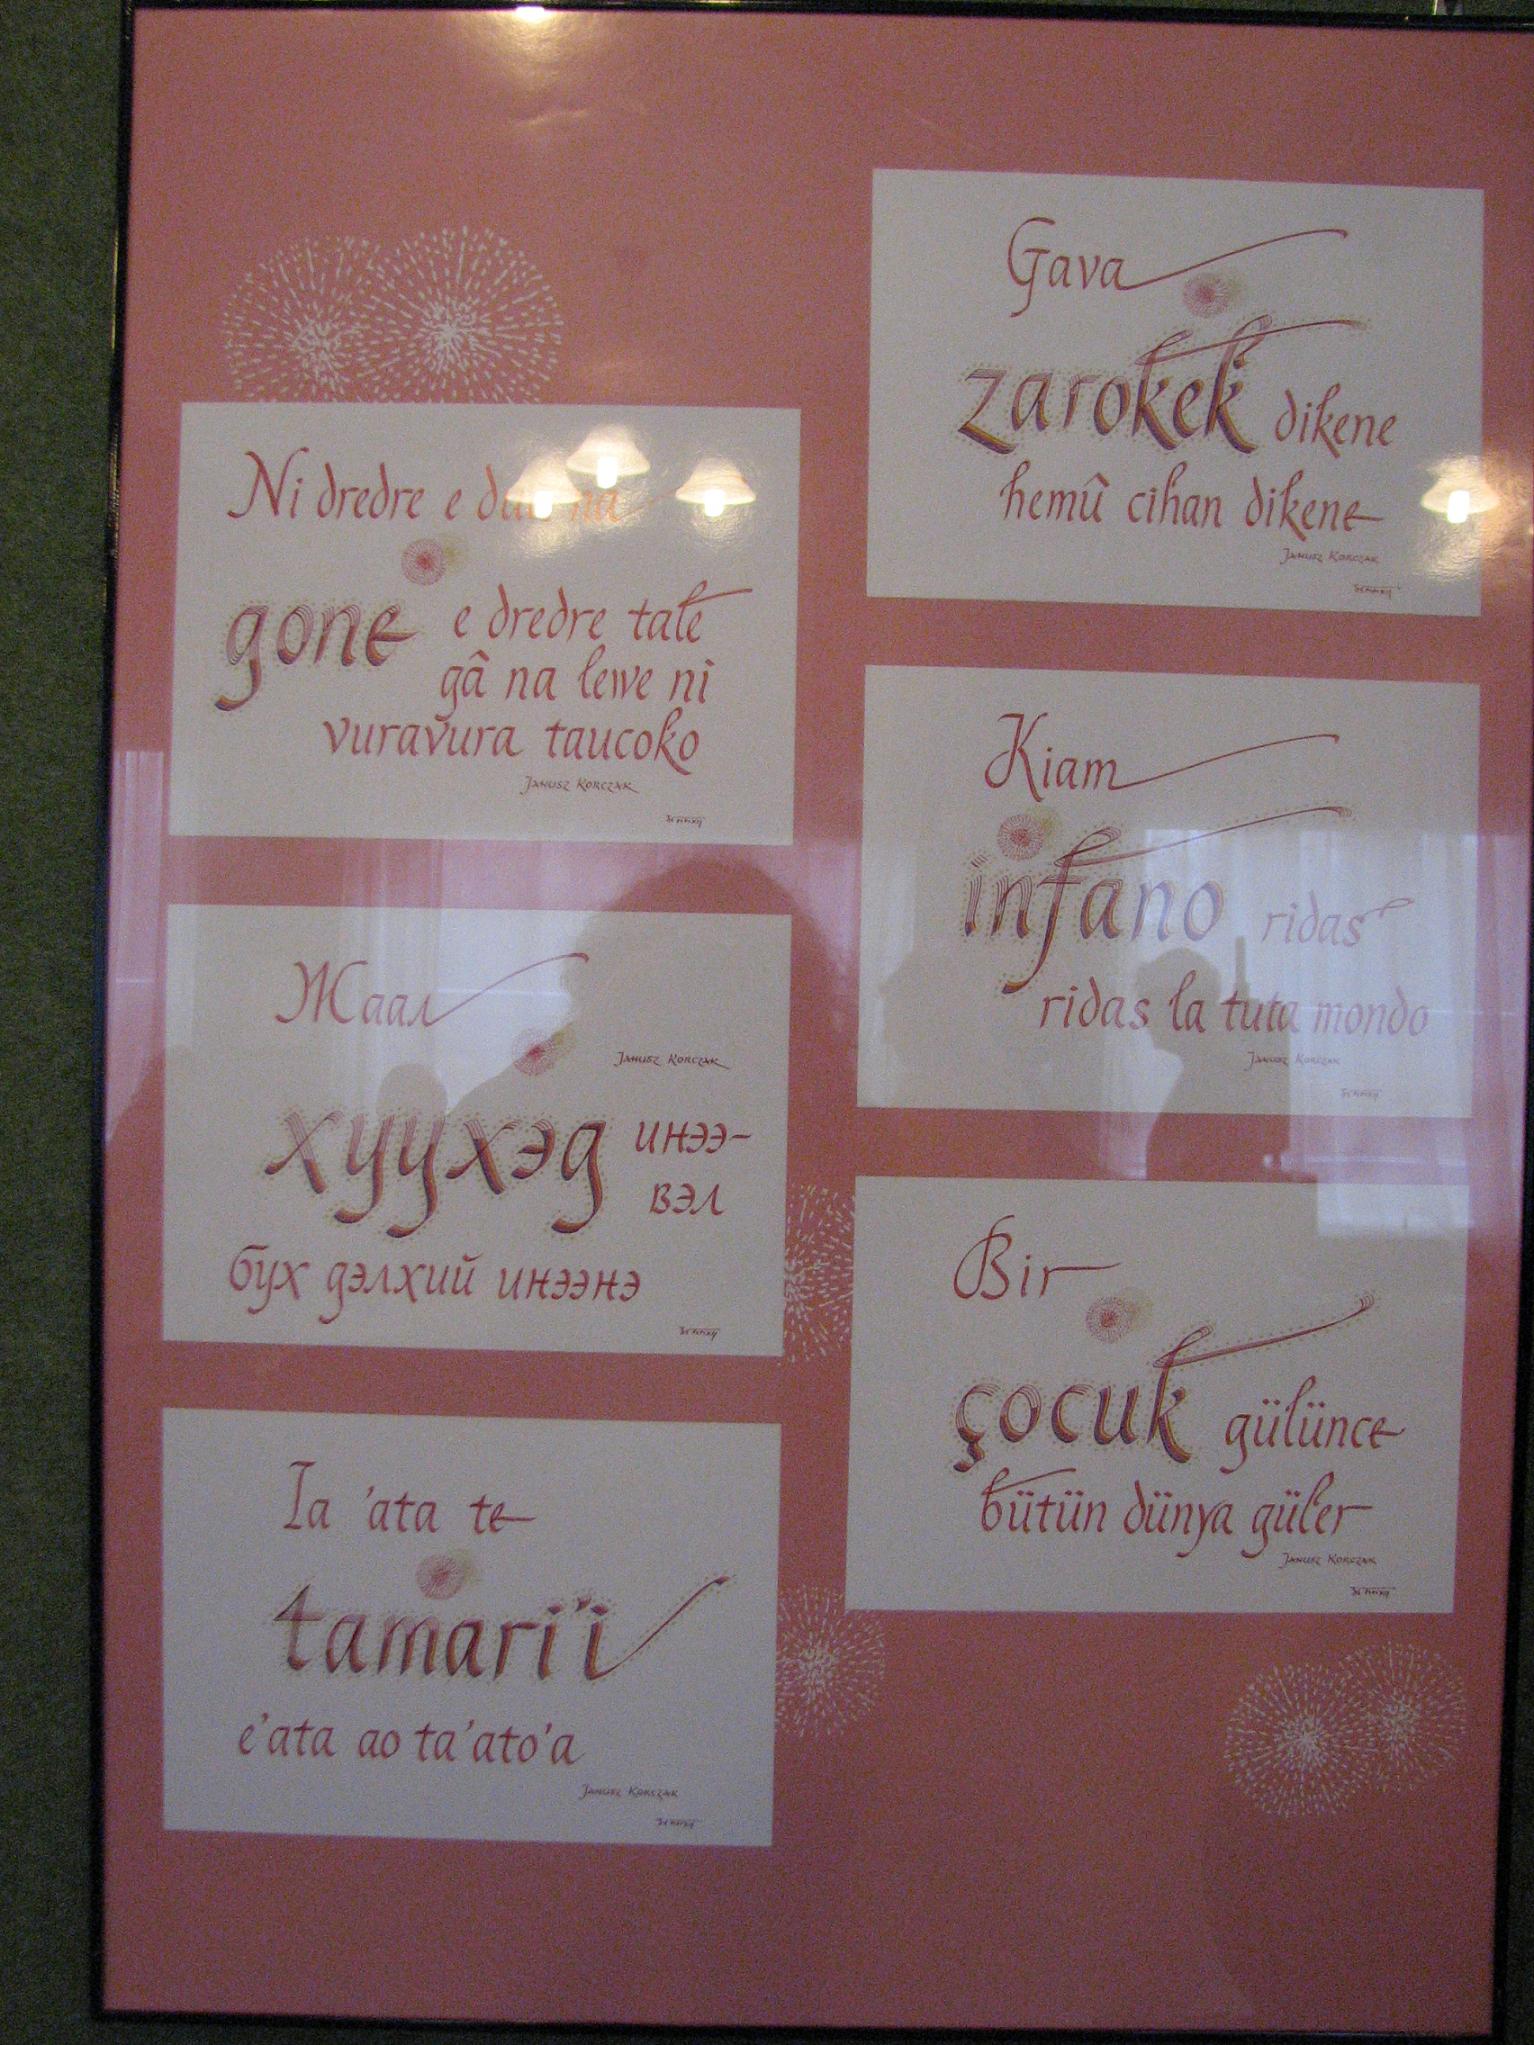 Ni dredre e dua na
gone e dredre tale
gâ na lewe ni
vuravura taucoko
JANUSZ KORCZAK
Жаал
JANUSZ KORCZAK
хуухэд инээ-
вэл
бух дэлхий инээнэ
Ia 'ata te
tamari'i
e'ata ao ta'ato'a
JANUSZ KORCZAK
Gava
zarokek dikene
hemû cihan dikene
JANUSZ KORCZAK
Kiam
infano ridas
ridas la tuta mondo
JANUSZ KORCZAK
Bir
çocuk gülünce
bütün dünya güler
JANUSZ KORCZAK